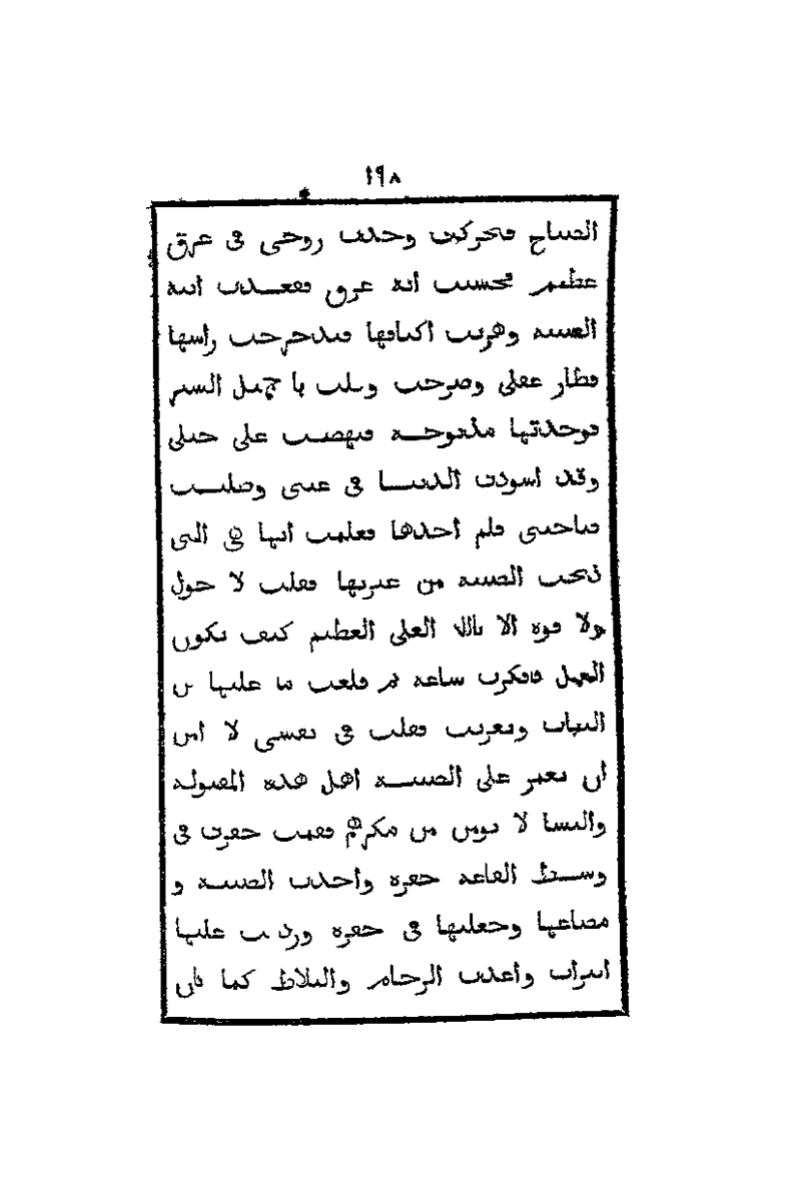 ١٩٨
الصباح فتحركت وجدت روحى فى عرق
عظيم فحسبت انه عرق فقعدت انبه
الصبيه وهزيت اكتافها فتدحرجت راسها
فطار عقلى وصرخت وقلت يا جميل الستر
فوجدتها مذبوحه فنهضت على حيلى
وقد اسودت الدنيا فى عينى وطلبت
صاحبتى فلم اجدها فعلمت انها هى التى
ذبحت الصبيه من غيرتها فقلت لا حول
ولا قوه الا بالله العلى العظيم كيف يكون
العمل فافكرت ساعه ثم قلعت ما عليها من
الثياب وتعريت فقلت فى نفسى لا امن
ان تعبر على الصبيه اهل هذه المقتوله
والنسا لا يومن من مكرهم فقمت حفرت فى
وسط القاعه حفره واخذت الصبيه و
مصاغها وجعلتها فى حفره وردمت عليها
التراب واعدت الرخام والبلاط كما كان